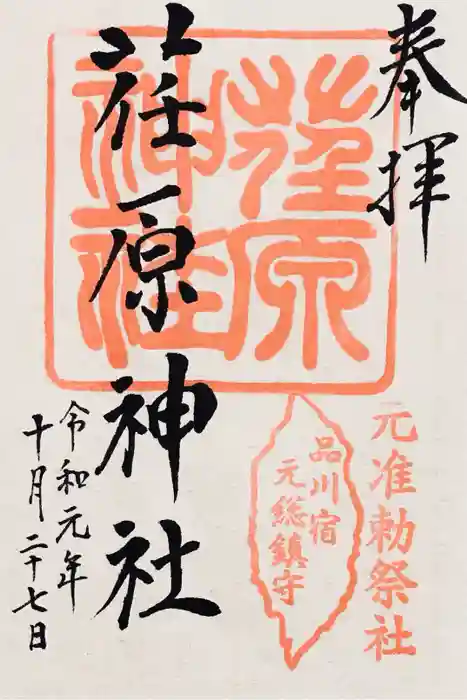 奉拝
元准勅祭社
品川宿
元総鎮守
荏原
神社
荏原神社
令和元年
十月二十七日